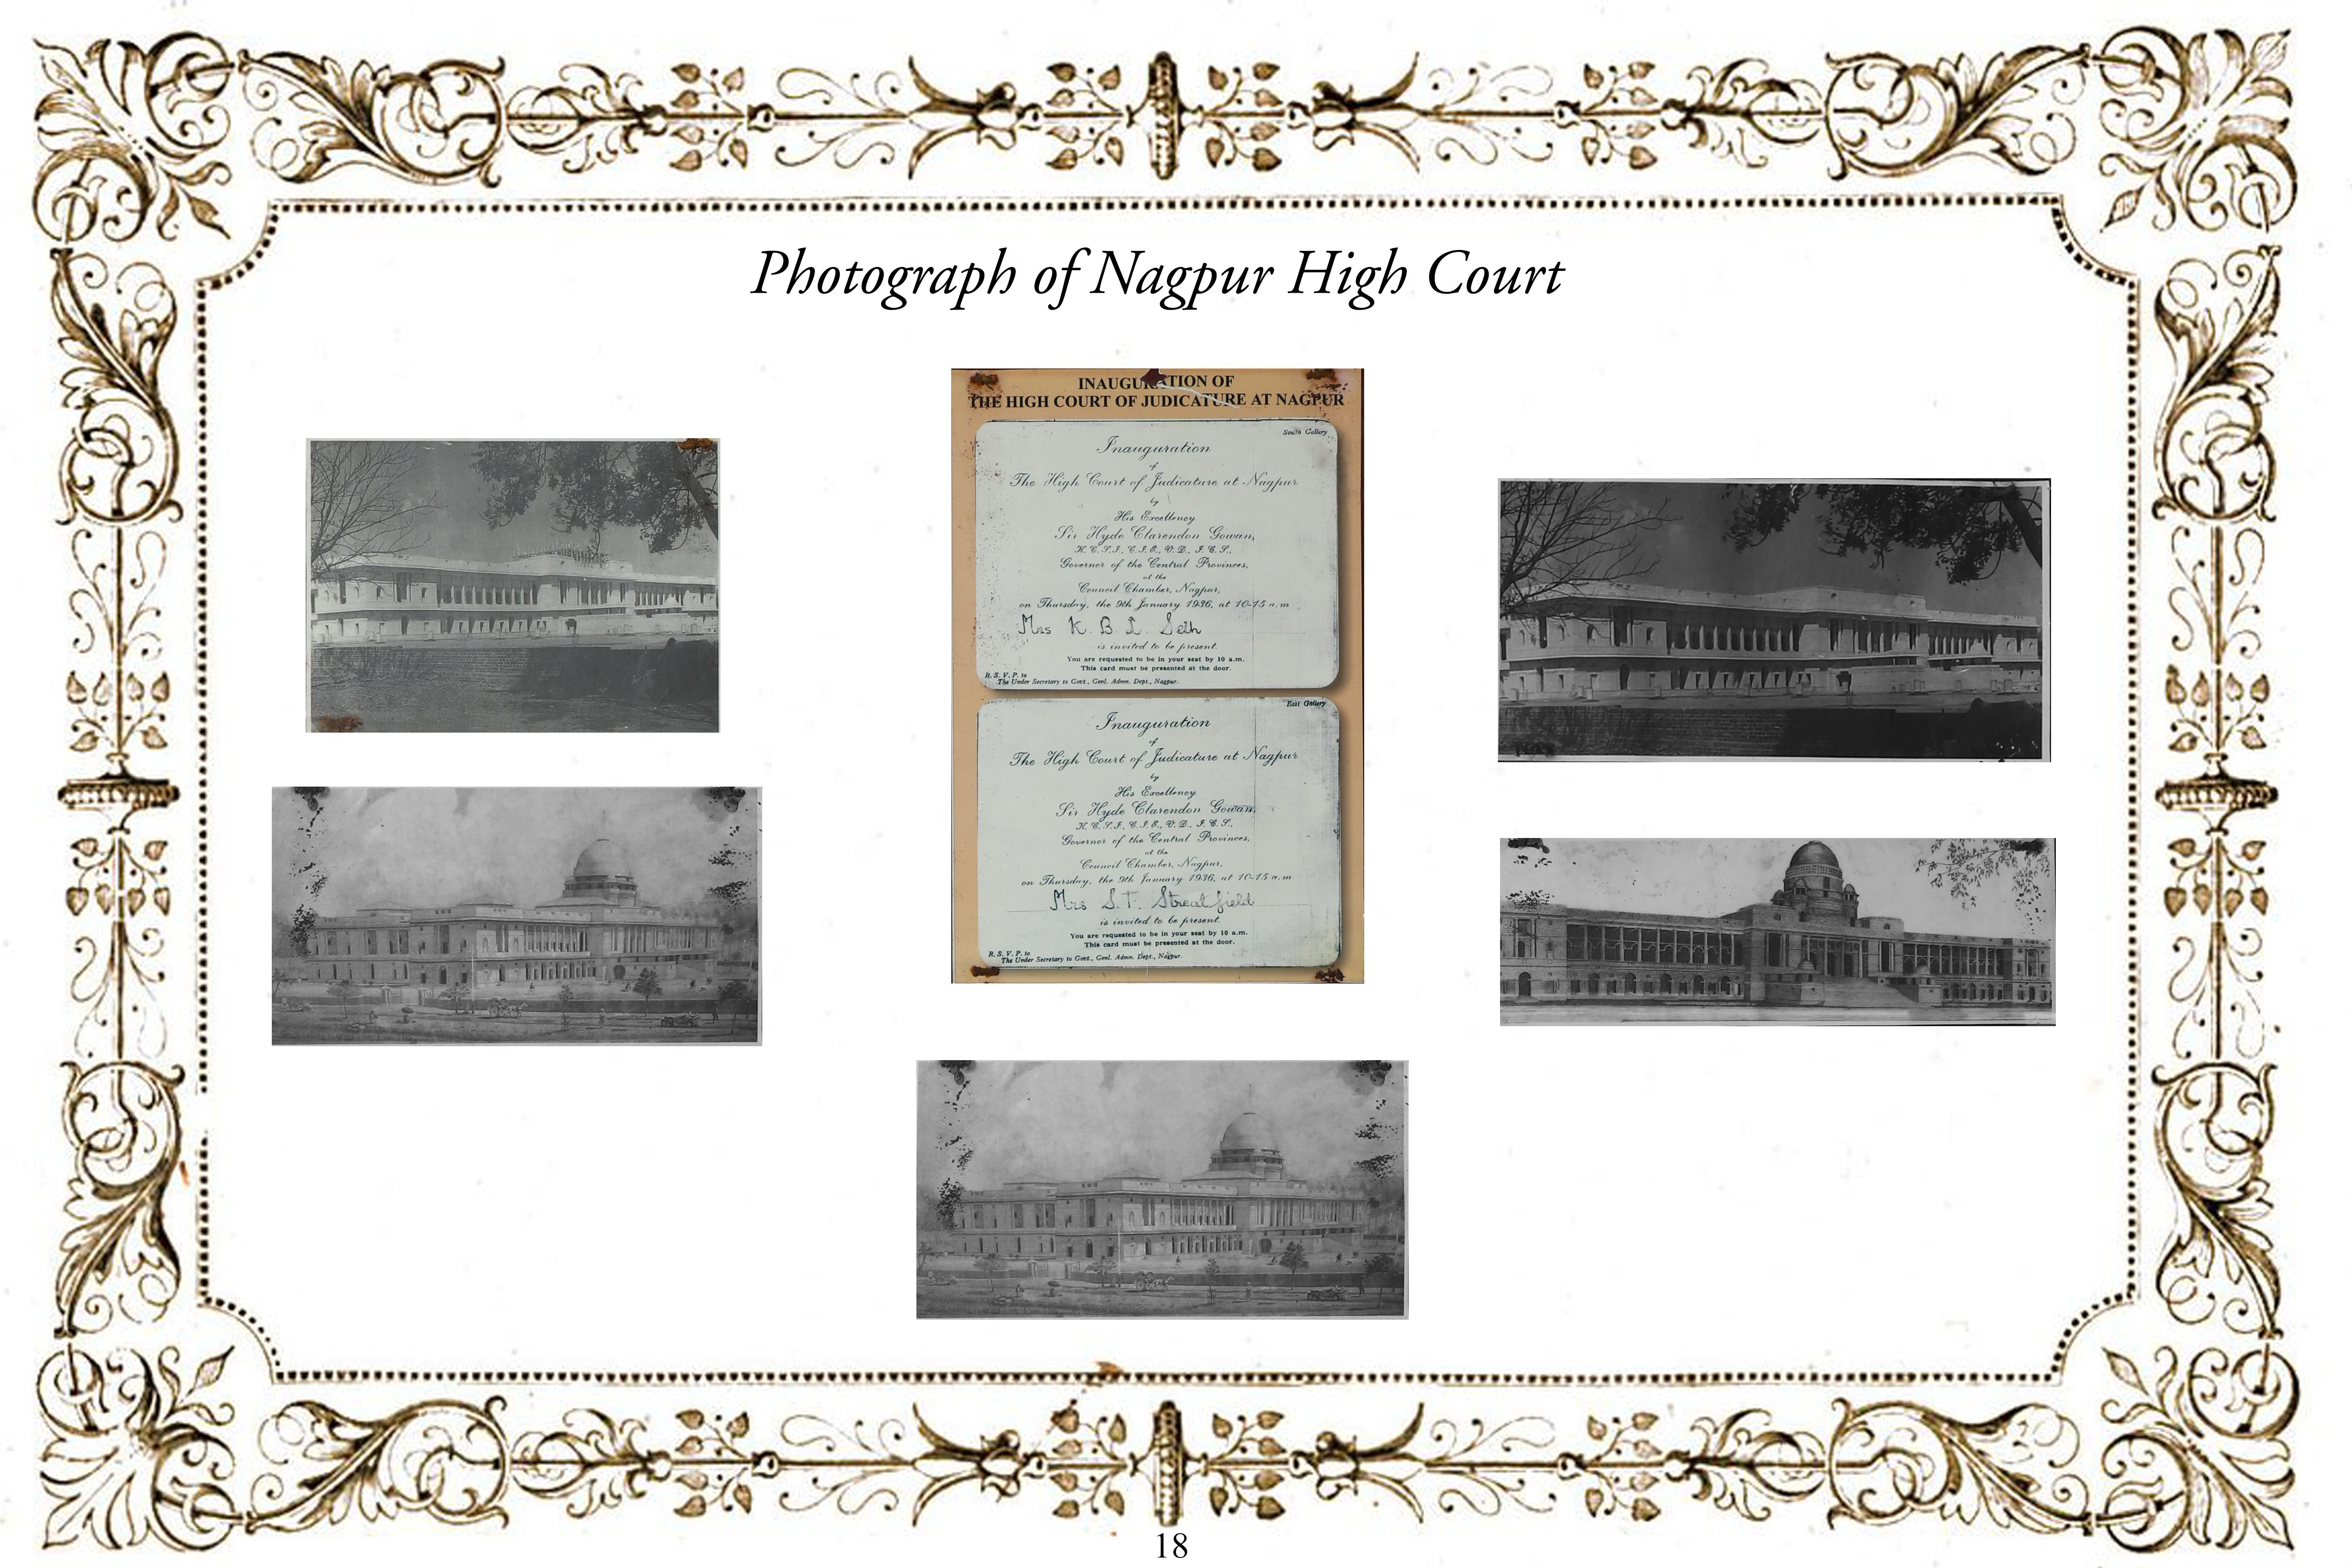 Photograph of Nagpur High Court
INAUGURATION OF
THE HIGH COURT OF JUDICATURE AT NAGPUR
South Gallery
Inauguration
of
The High Court of Judicature at Nagpur
by
His Excellency
Sir Hyde Clarendon Gowan,
K.C.S.I., C.I.E., V.D., I.C.S.,
Governor of the Central Provinces,
at the
Council Chamber, Nagpur,
on Thursday, the 9th January 1936, at 10-15 a.m
Mrs K. B. L. Seth
is invited to be present.
You are requested to be in your seat by 10 a.m.
This card must be presented at the door.
R. S. V. P. to
The Under Secretary to Govt., Genl. Admn. Dept., Nagpur.
East Gallery
Inauguration
of
The High Court of Judicature at Nagpur
by
His Excellency
Sir Hyde Clarendon Gowan,
K.C.S.I., C.I.E., V.D., I.C.S.,
Governor of the Central Provinces,
at the
Council Chamber, Nagpur,
on Thursday, the 9th January 1936, at 10-15 a.m
Mrs S. T. Streatfield
is invited to be present.
You are requested to be in your seat by 10 a.m.
This card must be presented at the door.
R. S. V. P. to
The Under Secretary to Govt., Genl. Admn. Dept., Nagpur.
18